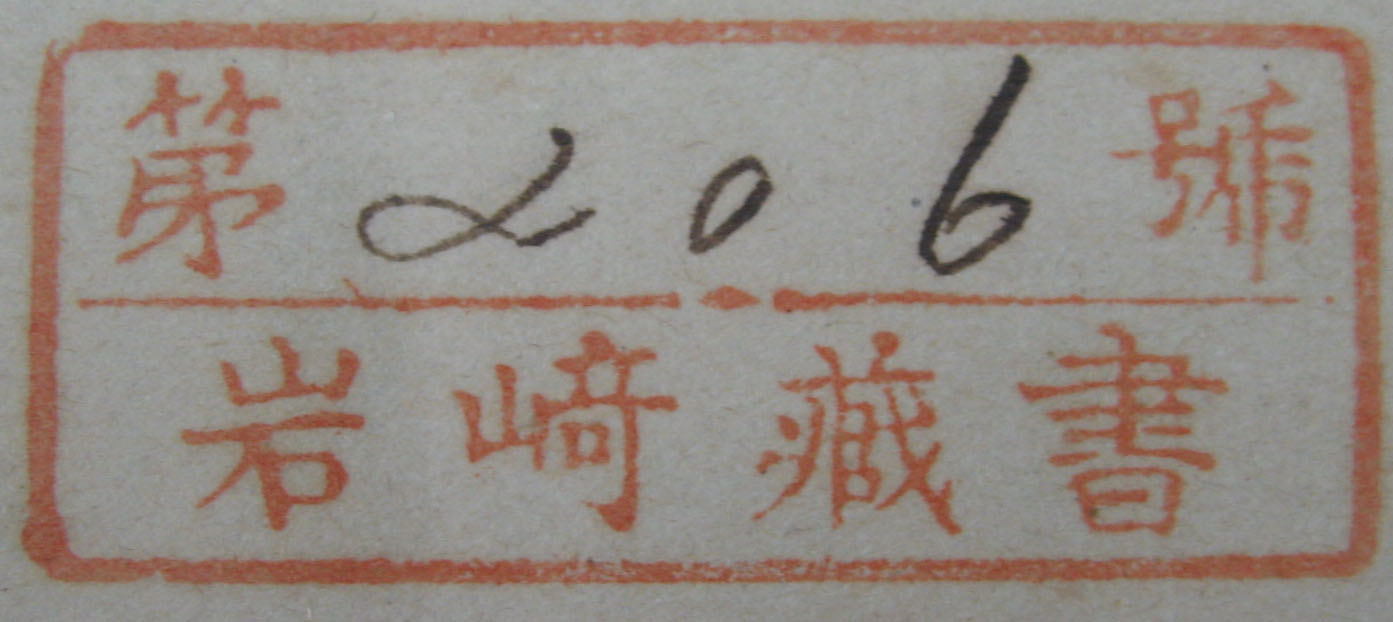 第206號
岩﨑藏書